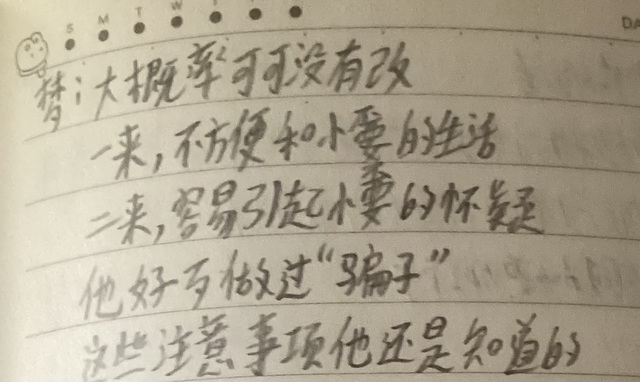 S M T W
DA
梦：大概率可可没有改
一来，不方便和小要的生活
二来，容易引起小要的怀疑
他好歹做过“骗子”
这些注意事项他还是知道的